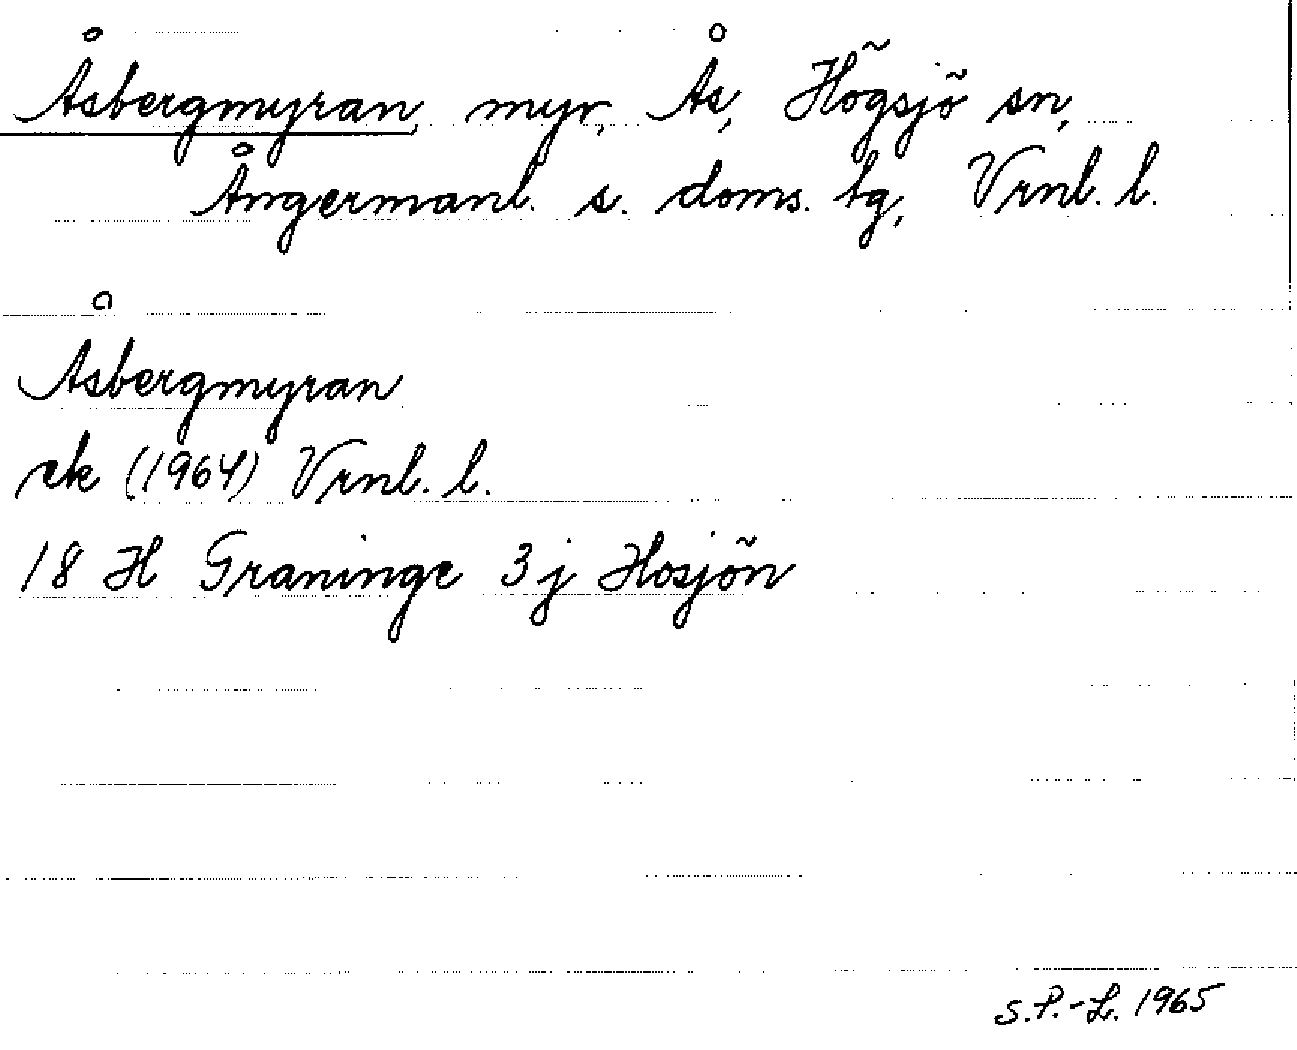 Åsbergmyran, myr, Ås, Högsjö sn,
Ångermanl. s. doms. tg, Vrnl. l.
Åsbergmyran
ek (1964) Vrnl. l.
18 H Graninge 3j Hosjön
S.P.-L. 1965